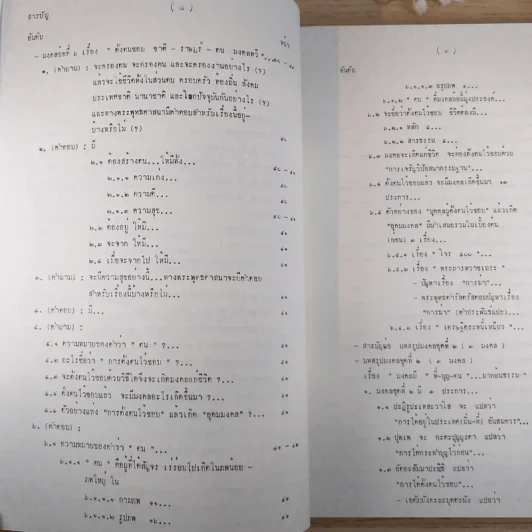 สารบัญ
( ๘ )
อันดับ
หน้า
- มงคลข้อที่ ๖ เรื่อง " ตั้งตนชอบ ชาติ - ราษฎร์ - ตน มงคลทวี "...
๑. (คำถาม) : จะครองตน จะครองคน และจะครองงานอย่างไร (?)
แล้วจะใช้ชีวิตทั้งในส่วนตน ครอบครัว ท้องถิ่น สังคม
ประเทศชาติ นานาชาติ และโลกปัจจุบันกันอย่างไร (?)
และทางพระพุทธศาสนามีคำตอบสำหรับเรื่องนี้อยู่-
บ้างหรือไม่ (?)
๒. (คำตอบ) : มี
๒.๑ ต้องสร้างตน...ให้มีทั้ง...
๒.๑.๑ ความเก่ง...
๒.๑.๒ ความดี...
๒.๑.๓ ความสุข...
๒.๒ ต้องอยู่ ให้มี...
๒.๓ จะจาก ให้มี...
๒.๔ เมื่อจะจากไป ให้มี...
๓. (คำถาม) : จะมีความสุขอย่างนี้...ทางพระพุทธศาสนาจะมีคำตอบ
สำหรับเรื่องนี้บ้างหรือไม่...
๔. (คำตอบ) : มี...
๕. (คำถาม) :
๕.๑ ความหมายของคำว่า " ตน " ?...
๕.๒ อะไรชื่อว่า " การตั้งตนไว้ชอบ " ?...
๕.๓ จะตั้งตนไว้ชอบด้วยวิธีใดจึงจะเกิดมงคลแก่ชีวิต ?...
๕.๔ ตั้งตนไว้ชอบแล้ว จะมีมงคลอะไรเกิดขึ้นมา ?...
๕.๕ ตัวอย่างแห่ง "การตั้งตนไว้ชอบ" แล้วเกิด "อุดมมงคล" ?...
๖. (คำตอบ) :
๖.๑ ความหมายของคำว่า " ตน "...
๖.๑.๑ " ตน " คือผู้ที่ได้สัญจร เร่ร่อนไปเกิดในภพน้อย -
ภพใหญ่ ใน
๖.๑.๑.๑ กามภพ ๑๑...
๖.๑.๑.๒ รูปภพ ๑๖...
( ๙ )
อันดับ
๖.๑.๑.๓ อรูปภพ ๔...
๖.๑.๒ " ตน " ที่มงคลขั้นนี้มุ่งประสงค์...
๖.๒ จะชื่อว่าตั้งตนไว้ชอบ ชีวิตต้องมี...
๖.๒.๑ หลัก ๕...
๖.๒.๒ สารธรรม ๕...
๖.๓ มงคลจะเกิดแก่ชีวิต จะต้องตั้งตนไว้ชอบด้วย
"การเจริญวิปัสสนากรรมฐาน"...
๖.๔ ตั้งตนไว้ชอบแล้ว จะมีมงคลเกิดขึ้นมา ๑๑
ประการ...
๖.๕ ตัวอย่างของ "บุคคลผู้ตั้งตนไว้ชอบ" แล้วเกิด
"อุดมมงคล" มีนำเสนอรวมในเบื้องต้น
(ก่อน) ๓ เรื่อง...
๖.๕.๑ เรื่อง " โจร ๕๐๐ "...
๖.๕.๒ เรื่อง
- ปัญหาเรื่อง "การมา"...
- พระพุทธดำรัสตรัสตอบปัญหาเรื่อง
"การมา" (คำประพันธ์แปล)...
๖.๕.๓ เรื่อง " เศรษฐีตระหนี่เหนียว "...
- สารบัญย่อ บทสรุปมงคลชุดที่ ๒ ( ๓ มงคล )
- บทสรุปมงคลชุดที่ ๒ ( ๓ มงคล )
เรื่อง " มงคลมี
๑. มงคลชุดที่ ๒ มี ๓ ประการ...
๑.๑ ปฏิรูปเทสะวาโส จะ แปลว่า
"การได้อยู่ในประเทศ(ถิ่น-ที่) อันสมควร"...
๑.๒ ปุพเพ จะ กะตะปุญญะตา แปลว่า
"การได้กระทำบุญไว้ก่อน"...
๑.๓ อัตตะสัมมาปะณิธิ แปลว่า
"การได้ตั้งตนไว้ชอบ"...
- เอตัมมังคะละมุตตะมัง แปลว่า